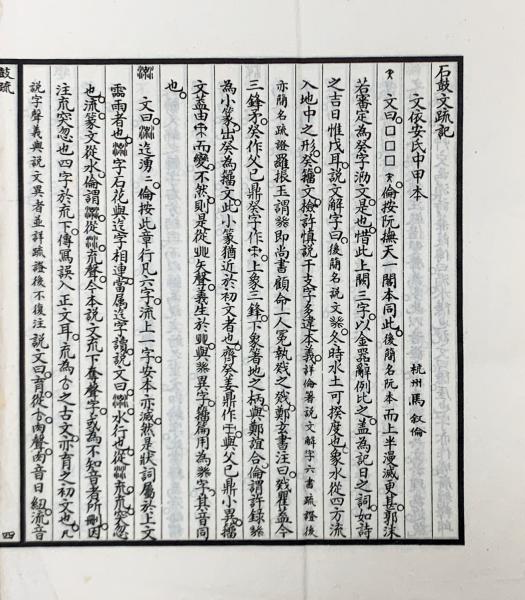 石鼓文疏記
文依安氏中甲本
杭州馬叙倫
文曰□□□ 倫按阮撫天一閣本同此後簡名阮本而上半漫滅更甚郭沫
若審定為癸字泐文是也惜此上闕三字以金器辭例比之蓋為記日之詞如詩
之吉日惟戊耳說文解字曰後簡名說文 冬時水土可揆度也象水從四方流
入地中之形癸籀文檢許慎說干支字多違本義詳倫箸說文解字六書疏證後
亦簡名疏證羅振玉謂 即尚書顧命一人冕執戣之戣鄭玄書注曰戣瞿蓋今
三鋒矛癸作父己鼎癸字作 上象三鋒下象箸地之柄與鄭誼合倫謂許錄
為小篆出癸為籀文此小篆猶近於初文者也齊癸姜鼎作 與父己鼎小異籀
文蓋由 而變不然則是從癶矢聲義生於癶與 異字籀篇用為 字其音同
也
文曰 迄湧〻倫按此章行凡六字流上一字安本亦滅然是狀詞屬於上文
霝雨者也 字右 與迄字相連當屬迄字讀說文曰 水行也從 㐬㐬突忽
也流篆文從水倫謂 從 㐬聲今本說文㐬下奪聲字或為不知音者所刪因
注㐬突忽也四字於㐬下傳寫誤入正文耳㐬為𠫓之古文亦育之初文也凡
說字聲義與說文異者並詳疏證後不復注 說文曰育從𠫓肉聲肉音日紐流音
鼓疏
四